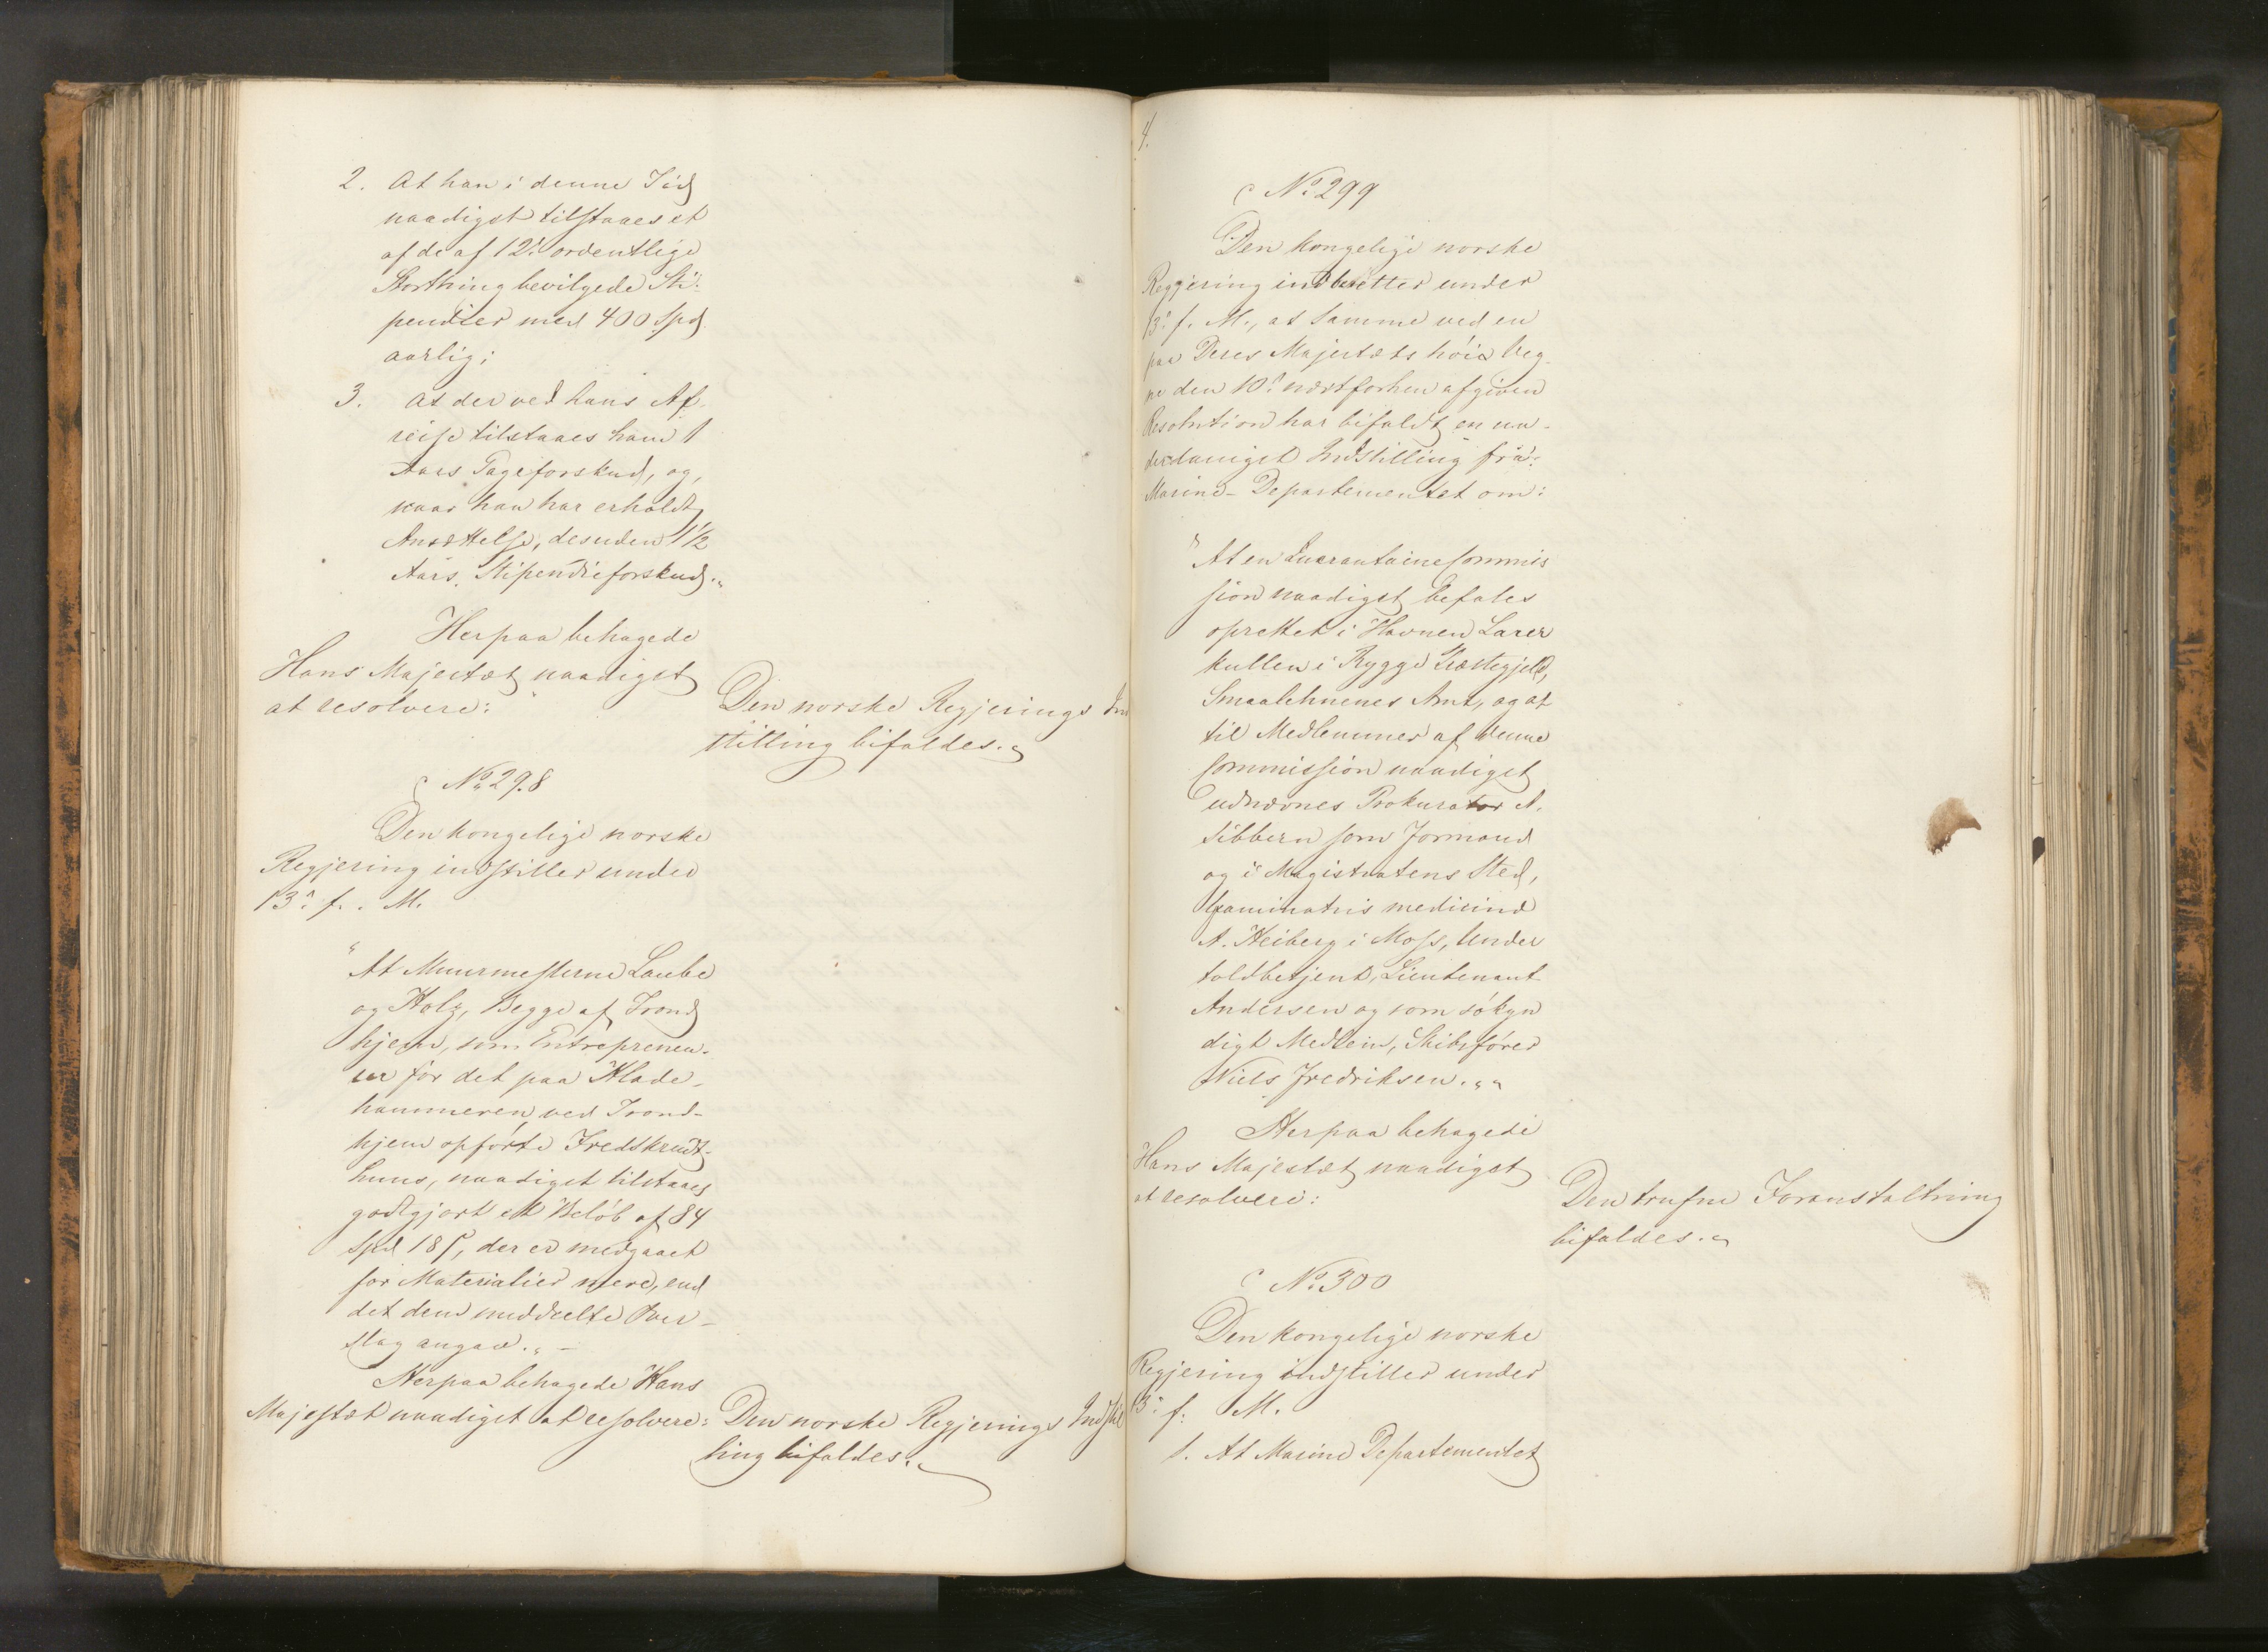 2. At han i denne Tid
naadigst tilstaaes et
af de af 12te ordentlige
Storthing bevilgede Sti-
pendier med 400 Spd
aarlig;
3. At der ved hans Af-
reise tilstaaes ham 1
Aars Gageforskud, og,
naar han har erholdt
Ansættelse, desuden 1 1/2
Aars Stipendieforskud."
Herpaa behagede
Hans Majestæt naadigst
at resolvere:
Den norske Regjerings Ind
stilling bifaldes.
No 298
Den kongelige norske
Regjering indstiller under
13de f. M.
"At Muurmesterne Laube
og Holz, Begge af Trond
hjem, som Entrepreneu-
rer for det paa Hlade-
hammeren ved Trond-
hjem opførte Fredskrudt-
huus, naadigst tilstaaes
godtgjort et Beløb af 84
Spd 18 s, der er medgaaet
for Materialier mere, end
det dem meddeelte Over-
slag angav." -
Herpaa behagede Hans
Majestæt naadigst at resolvere:
Den norske Regjerings Indstil
ling bifaldes.
4.
No 299
Den kongelige norske
Regjering indberetter under
13de f. M., at samme ved en
paa Deres Majestæts høie Veg-
ne den 10de næstforhen afgiven
Resolution har bifaldt en un-
derdanigst Indstilling fra
Marine-Departementet om:
"At en Quarantaine Commis
sion naadigst befales
oprettet i Havnen Larer
kullen i Rygge Præstegjeld,
Smaalehnenes Amt, og at
til Medlemmer af denne
Commission naadigst
udnævnes Prokurator A.
Sibbern som Formand
og i Magistratens Sted,
Examinatus medicinæ
A. Heiberg i Moss, Under
toldbetjent, Lieutenant
Andersen og som søkyn
digt Medlem, Skibsfører
Niels Fredriksen."
Herpaa behagede
Hans Majestæt naadigst
at resolvere:
Den trufne Foranstaltning
bifaldes.
No 300
Den kongelige norske
Regjering indstiller under
13de f. M.
1. At Marine Departementet